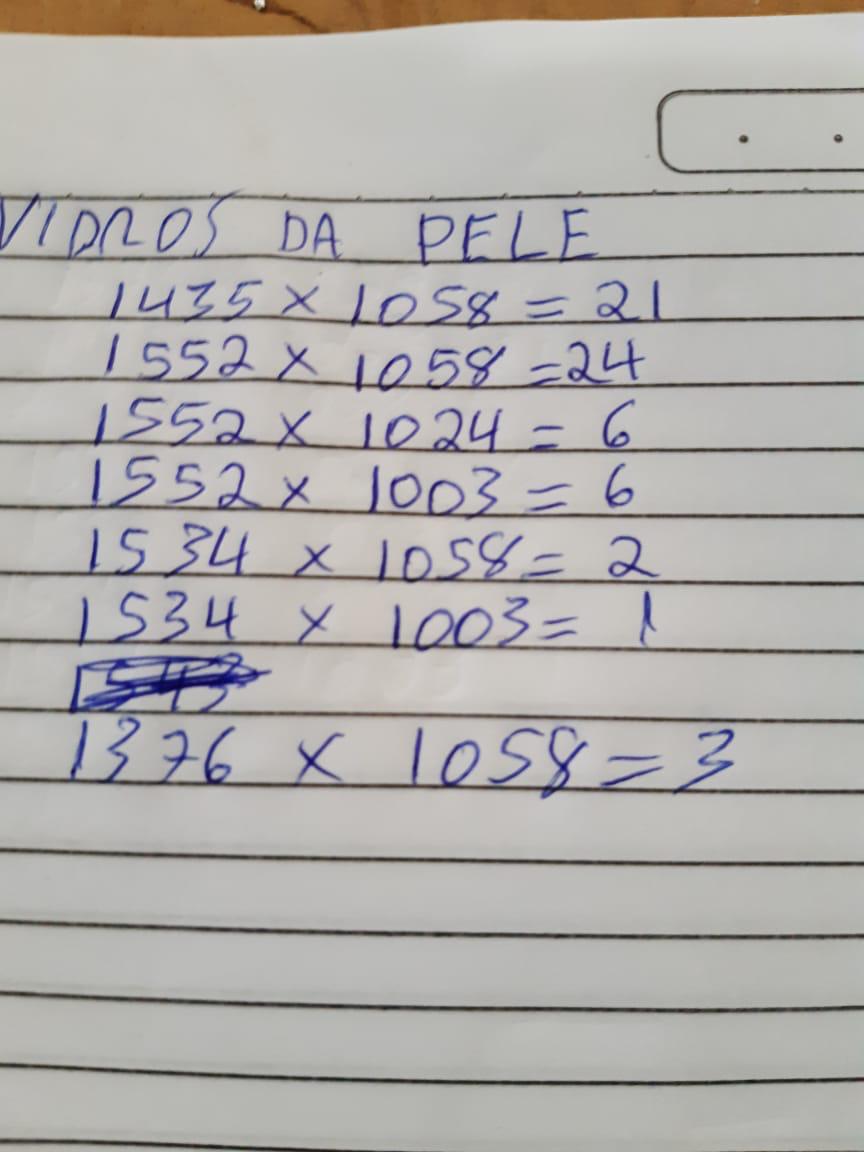 VIDROS DA PELE
1435 x 1058 = 21
1552 x 1058 = 24
1552 x 1024 = 6
1552 x 1003 = 6
1534 x 1058 = 2
1534 x 1003 = 1
1376 x 1058 = 3